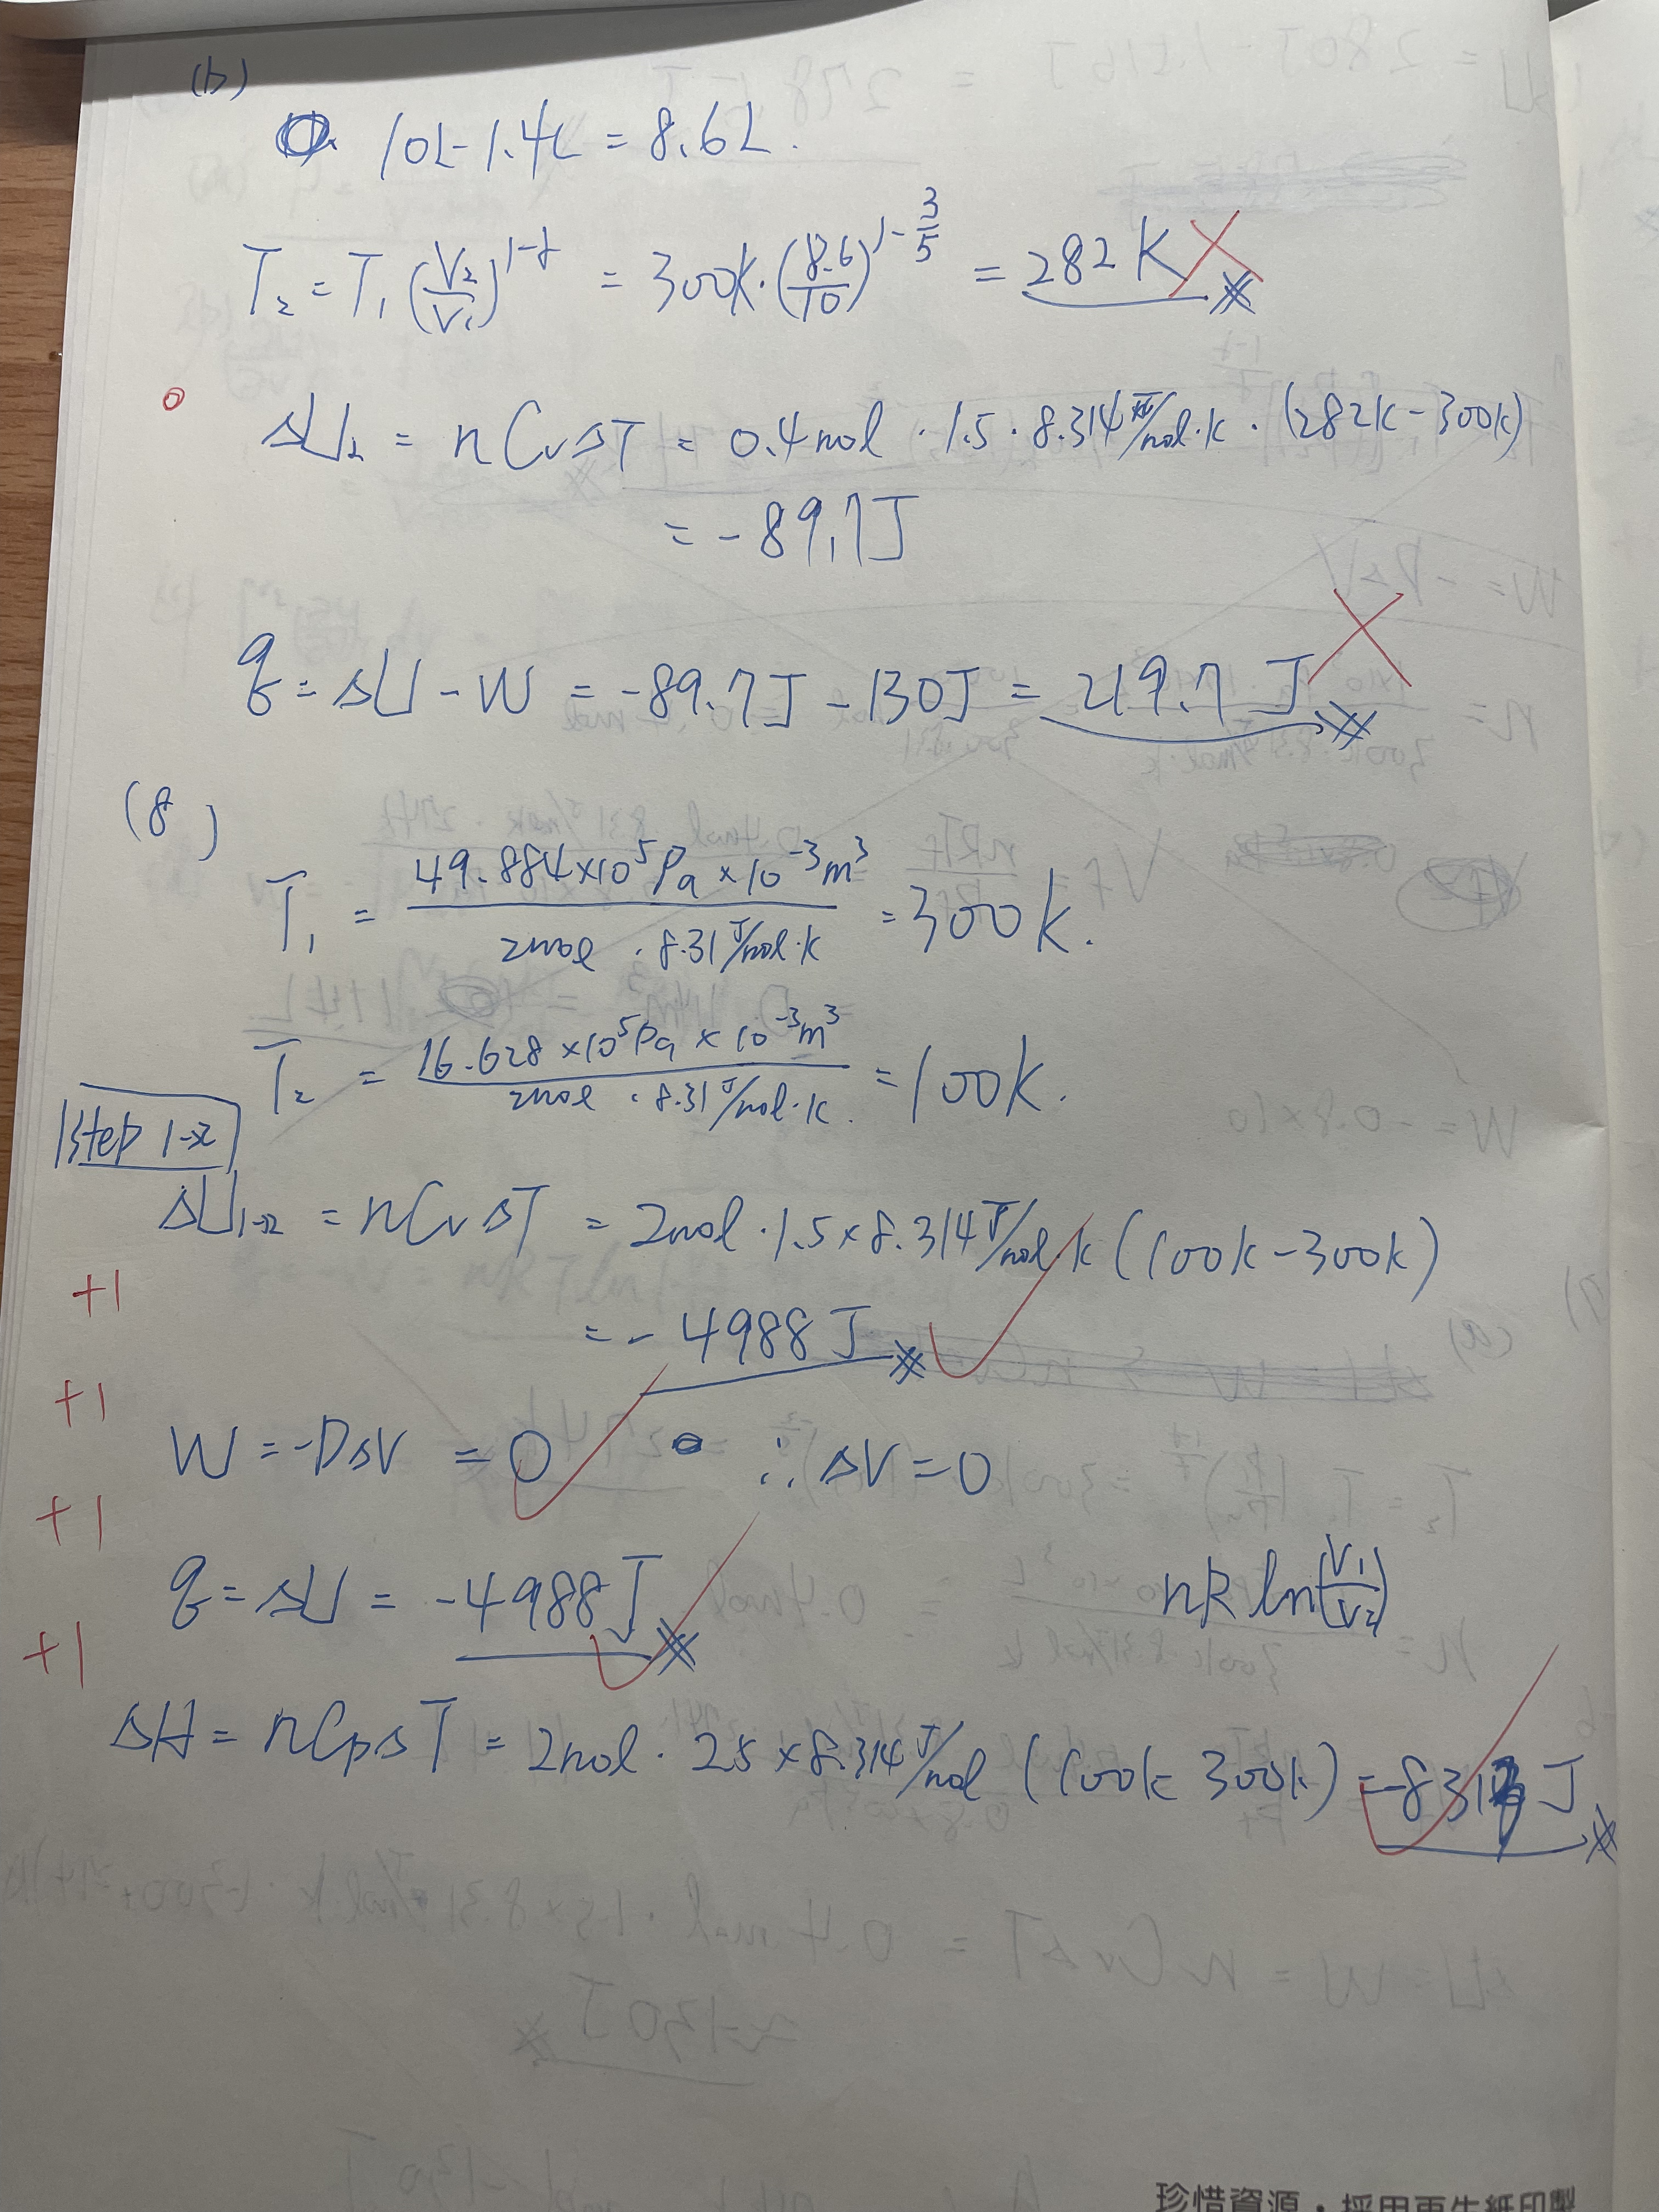 (b)
10L-1.4L = 8.6L.
T₂ = T₁ (V₂/V₁)^(1-γ) = 300k·(8.6/10)^(1-3/5) = 282K
0
ΔU₂ = nCvΔT = 0.4mol · 1.5 · 8.314 J/mol·k · (282k-300k)
= -89.7J
q = ΔU - W = -89.7J - 130J = 219.7 J
(8)
T₁ = 49.884×10⁵Pa × 10⁻³m³ / 2mol · 8.31 J/mol·k = 300k.
T₂ = 16.628 ×10⁵Pa × 10⁻³m³ / 2mol · 8.31 J/mol·k. = 100k.
Step 1→2
ΔU₁→₂ = nCvΔT = 2mol · 1.5 × 8.314 J/mol·k (100k-300k)
+1
= - 4988 J
+1
W = -PΔV = 0 ∴ ΔV = 0
+1
q = ΔU = -4988J
nR ln(V₁/V₂)
+1
ΔH = nCpΔT = 2mol · 2.5 × 8.314 J/mol (100k-300k) = J
珍惜資源・採用再生紙印製